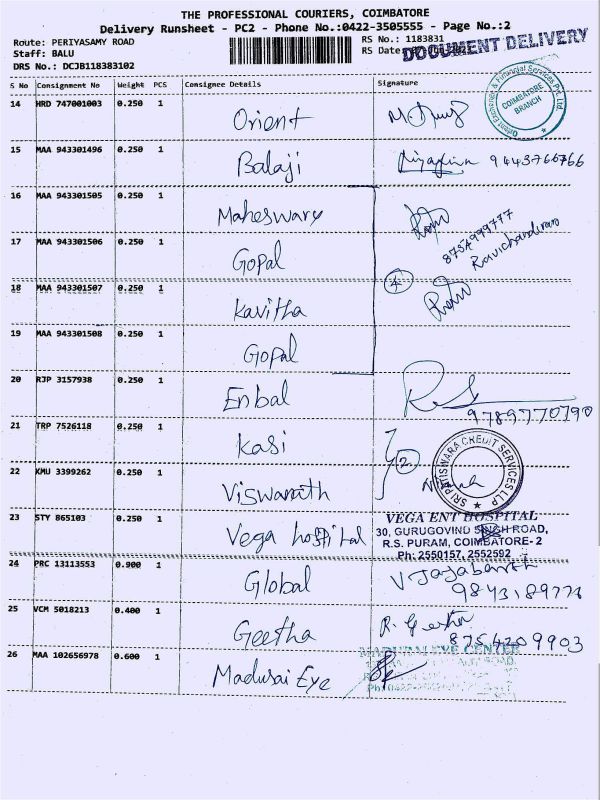 THE PROFESSIONAL COURIERS, COIMBATORE
Delivery Runsheet - PC2 - Phone No.:0422-3505555 - Page No.:2
Route: PERIYASAMY ROAD RS No.: 1183831
Staff: BALU RS Date:
DOCUMENT DELIVERY
DRS No.: DCJB118383102
S No Consignment No Weight PCS Consignee Details Signature
14 HRD 747001003 0.250 1 Orient
COIMBATORE BRANCH
15 MAA 943301496 0.250 1 Balaji 9443766766
16 MAA 943301505 0.250 1 Maheswary
8754999777
Ravichandiran
17 MAA 943301506 0.250 1 Gopal
4
18 MAA 943301507 0.250 1 Kavitha
19 MAA 943301508 0.250 1 Gopal
20 RJP 3157938 0.250 1 Enbal
9789770790
21 TRP 7526118 0.250 1 Kasi
2
SRI PATISWARA CREDIT SERVICES LLP
22 KMU 3399262 0.250 1 Viswanath
23 STY 865103 0.250 1 Vega hospital
VEGA ENT HOSPITAL
30, GURUGOVIND SINGH ROAD,
R.S. PURAM, COIMBATORE- 2
Ph: 2550157, 2552592
24 PRC 13113553 0.900 1 Global
9843189773
25 VCM 5018213 0.400 1 Geetha R. Geetha
8754209903
26 MAA 102656978 0.600 1 Madurai Eye